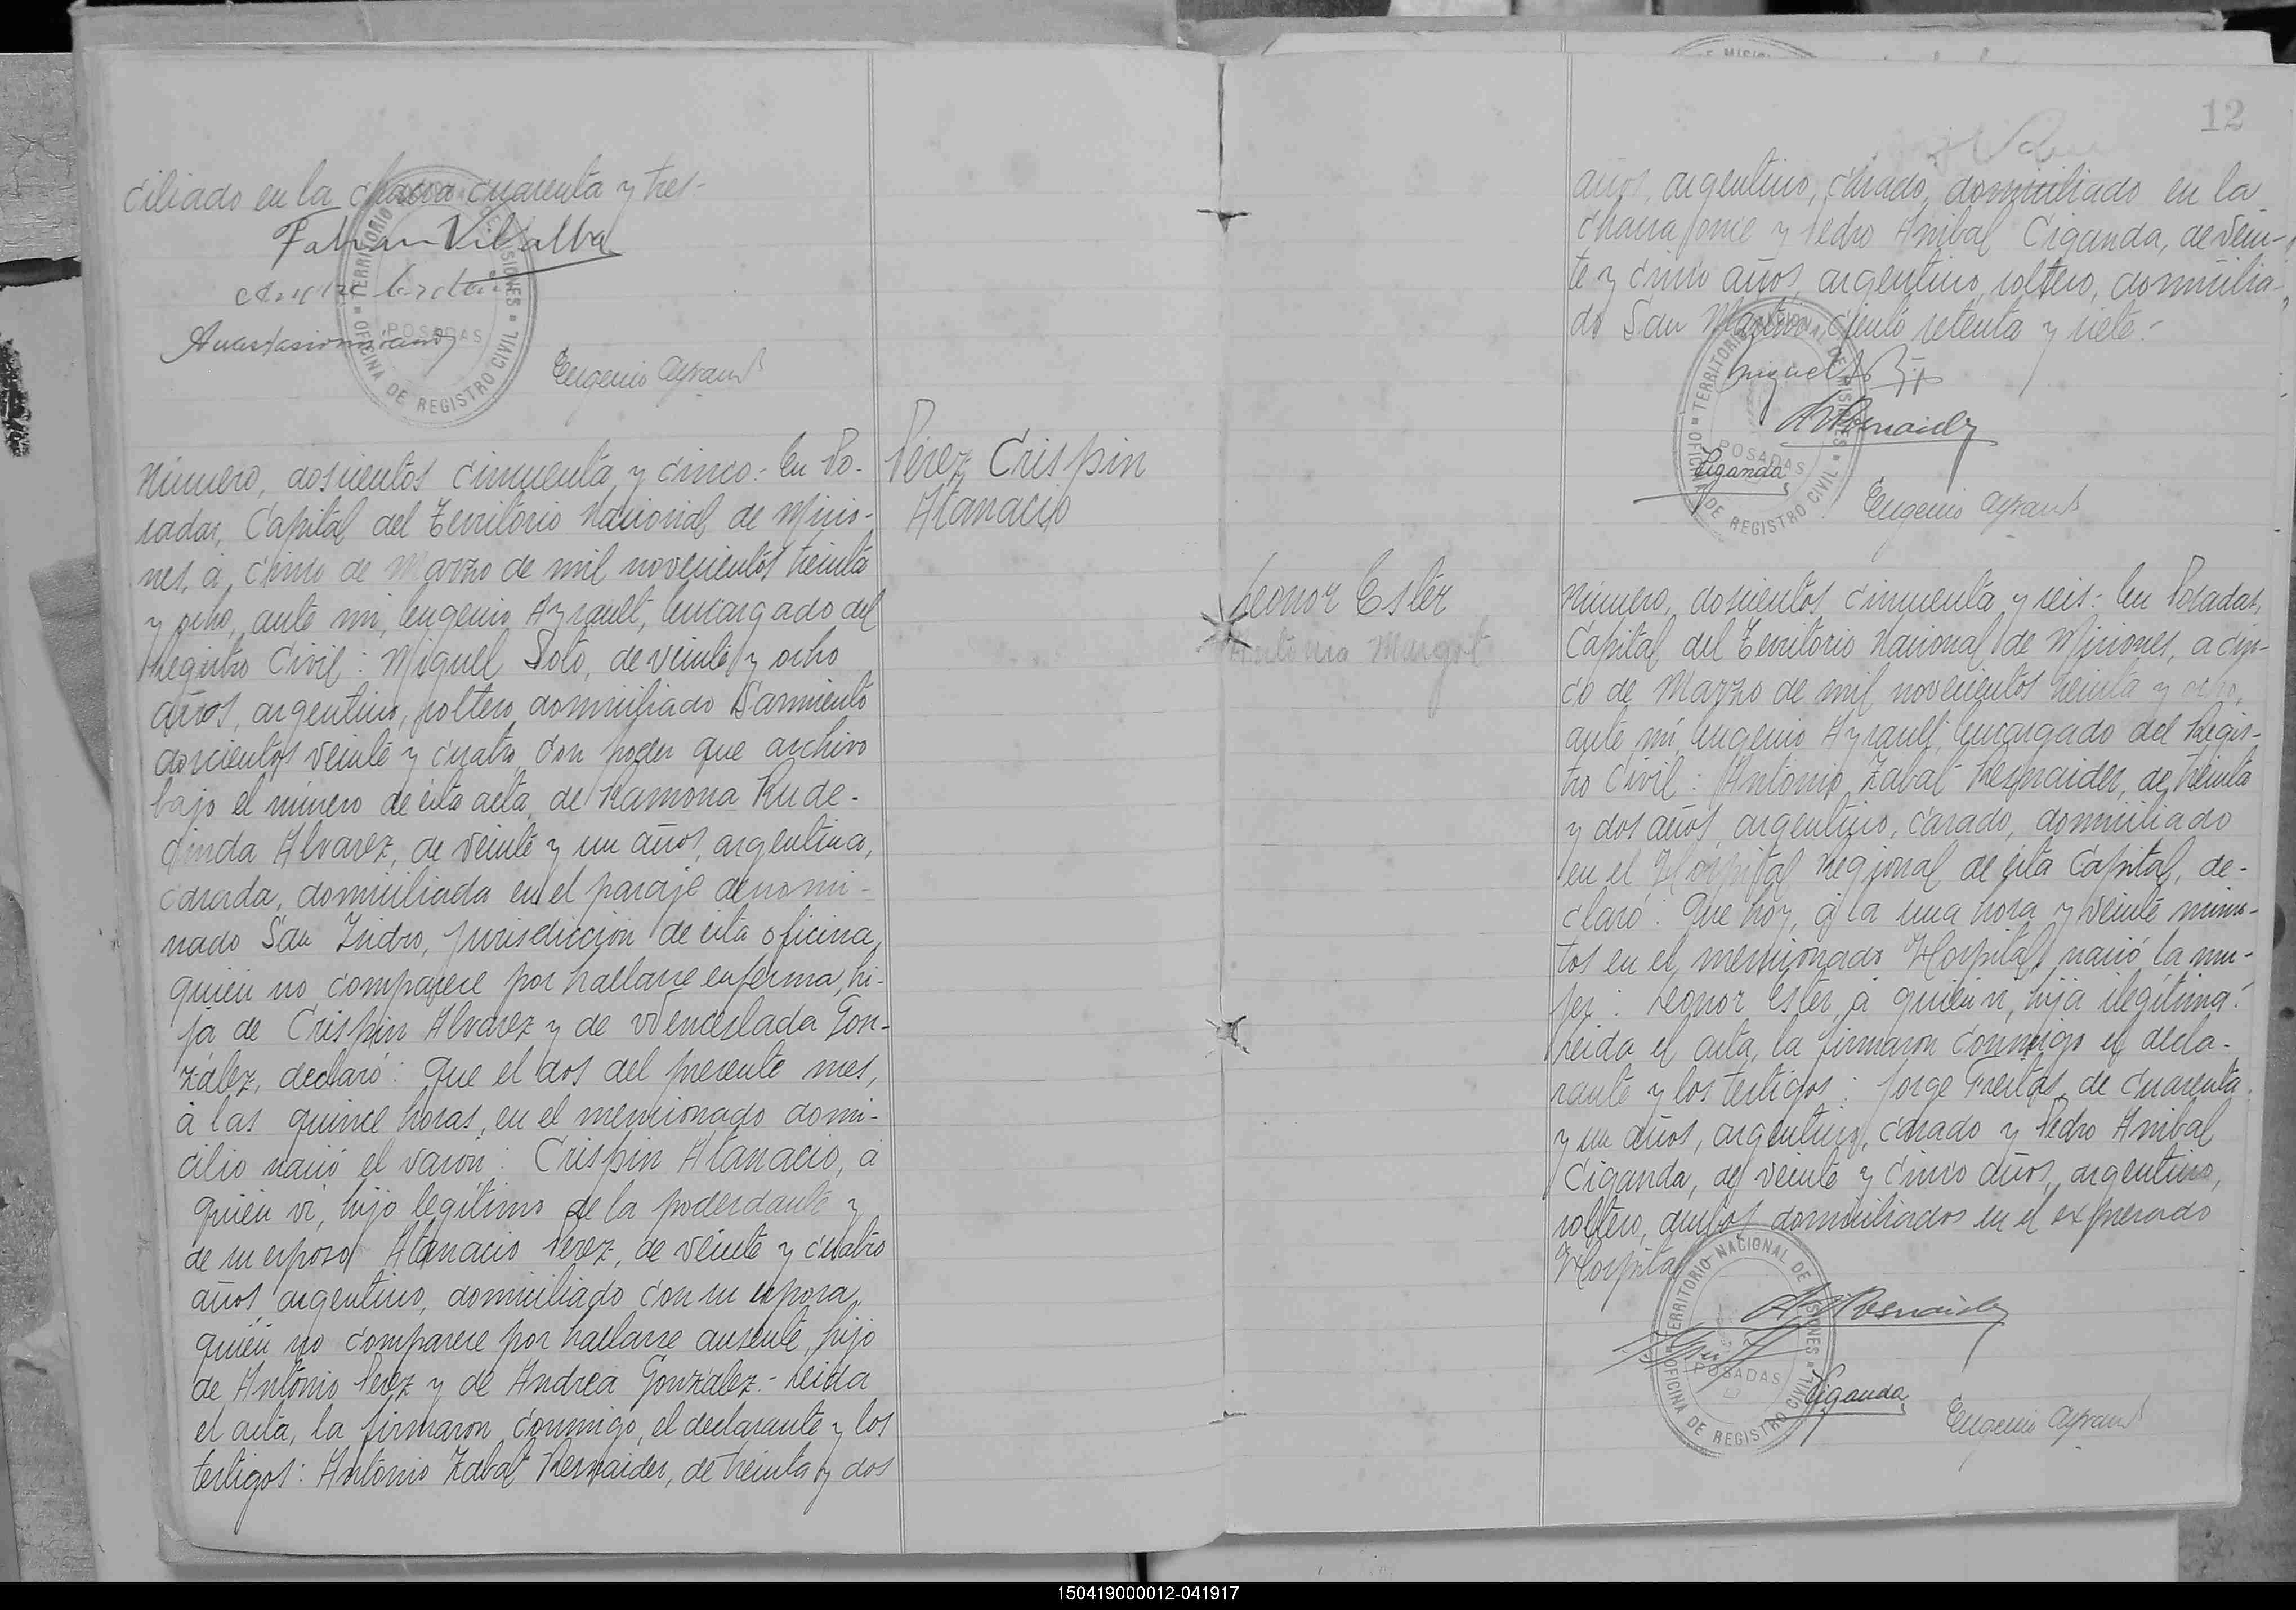 ciliado en la chacra cuarenta y tres.-
Fabian Villalba
Anastasio
Eugenio Ayrault
TERRITORIO NACIONAL DE MISIONES
POSADAS
OFICINA DE REGISTRO CIVIL
Pérez Crispin
Atanacio
Número, doscientos cincuenta y cinco: En Po-
sadas, Capital del Territorio Nacional de Misio-
nes, a cinco de Marzo de mil novecientos treinta
y ocho, ante mi, Eugenio Ayrault, Encargado del
Registro Civil: Miguel Soto, de veinte y ocho
años, argentino, soltero, domiciliado Sarmiento
doscientos veinte y cuatro, con poder que archivo
bajo el número de ésta acta, de Ramona Rude-
cinda Alvarez, de veinte y un años, argentina,
casada, domiciliada en el paraje denomi-
nado San Isidro, jurisdicción de ésta oficina,
quien no comparece por hallarse enferma, hi-
ja de Crispin Alvarez y de Wenceslada Gon-
zález, declaró: Que el dos del presente mes,
a las quince horas, en el mencionado domi-
cilio nació el varon: Crispin Atanacio, a
quien ví, hijo legítimo de la poderdante y
de su esposo Atanacio Pérez, de veinte y cuatro
años argentino, domiciliado con su esposa,
quien no comparece por hallarse ausente, hijo
de Antonio Pérez y de Andrea González.- Leida
el acta, la firmaron conmigo, el declarante y los
testigos: Antonio Zabat Resnaider, de treinta y dos
12
años, argentino, casado, domiciliado en la
chacra once y Pedro Anibal Ciganda, de vein-
te y cinco años, argentino, soltero, domicilia-
do San Martin, ciento setenta y siete.-
Miguel
Resnaider
Ciganda
Eugenio Ayrault
TERRITORIO NACIONAL DE MISIONES
POSADAS
OFICINA DE REGISTRO CIVIL
Leonor Ester
Antonia Margot
Número, doscientos cincuenta y seis: En Posadas,
Capital del Territorio Nacional de Misiones, a cin-
co de Marzo de mil novecientos treinta y ocho,
ante mí, Eugenio Ayrault, Encargado del Regis-
tro Civil: Antonio Zabat Resnaider, de treinta
y dos años, argentino, casado, domiciliado
en el Hospital Regional de ésta Capital, de-
claró: Que hoy, a la una hora y veinte minu-
tos en el mencionado Hospital, nació la mu-
jer: Leonor Ester, a quien ví, hija ilegítima.-
Leida el acta, la firmaron conmigo el decla-
rante y los testigos: Jorge Freitas, de cuarenta
y un años, argentino, casado y Pedro Anibal
Ciganda, de veinte y cinco años, argentino,
soltero, ambos domiciliados en el expresado
Hospital
Resnaider
Ciganda
Eugenio Ayrault
TERRITORIO NACIONAL DE MISIONES
POSADAS
OFICINA DE REGISTRO CIVIL
150419000012-041917